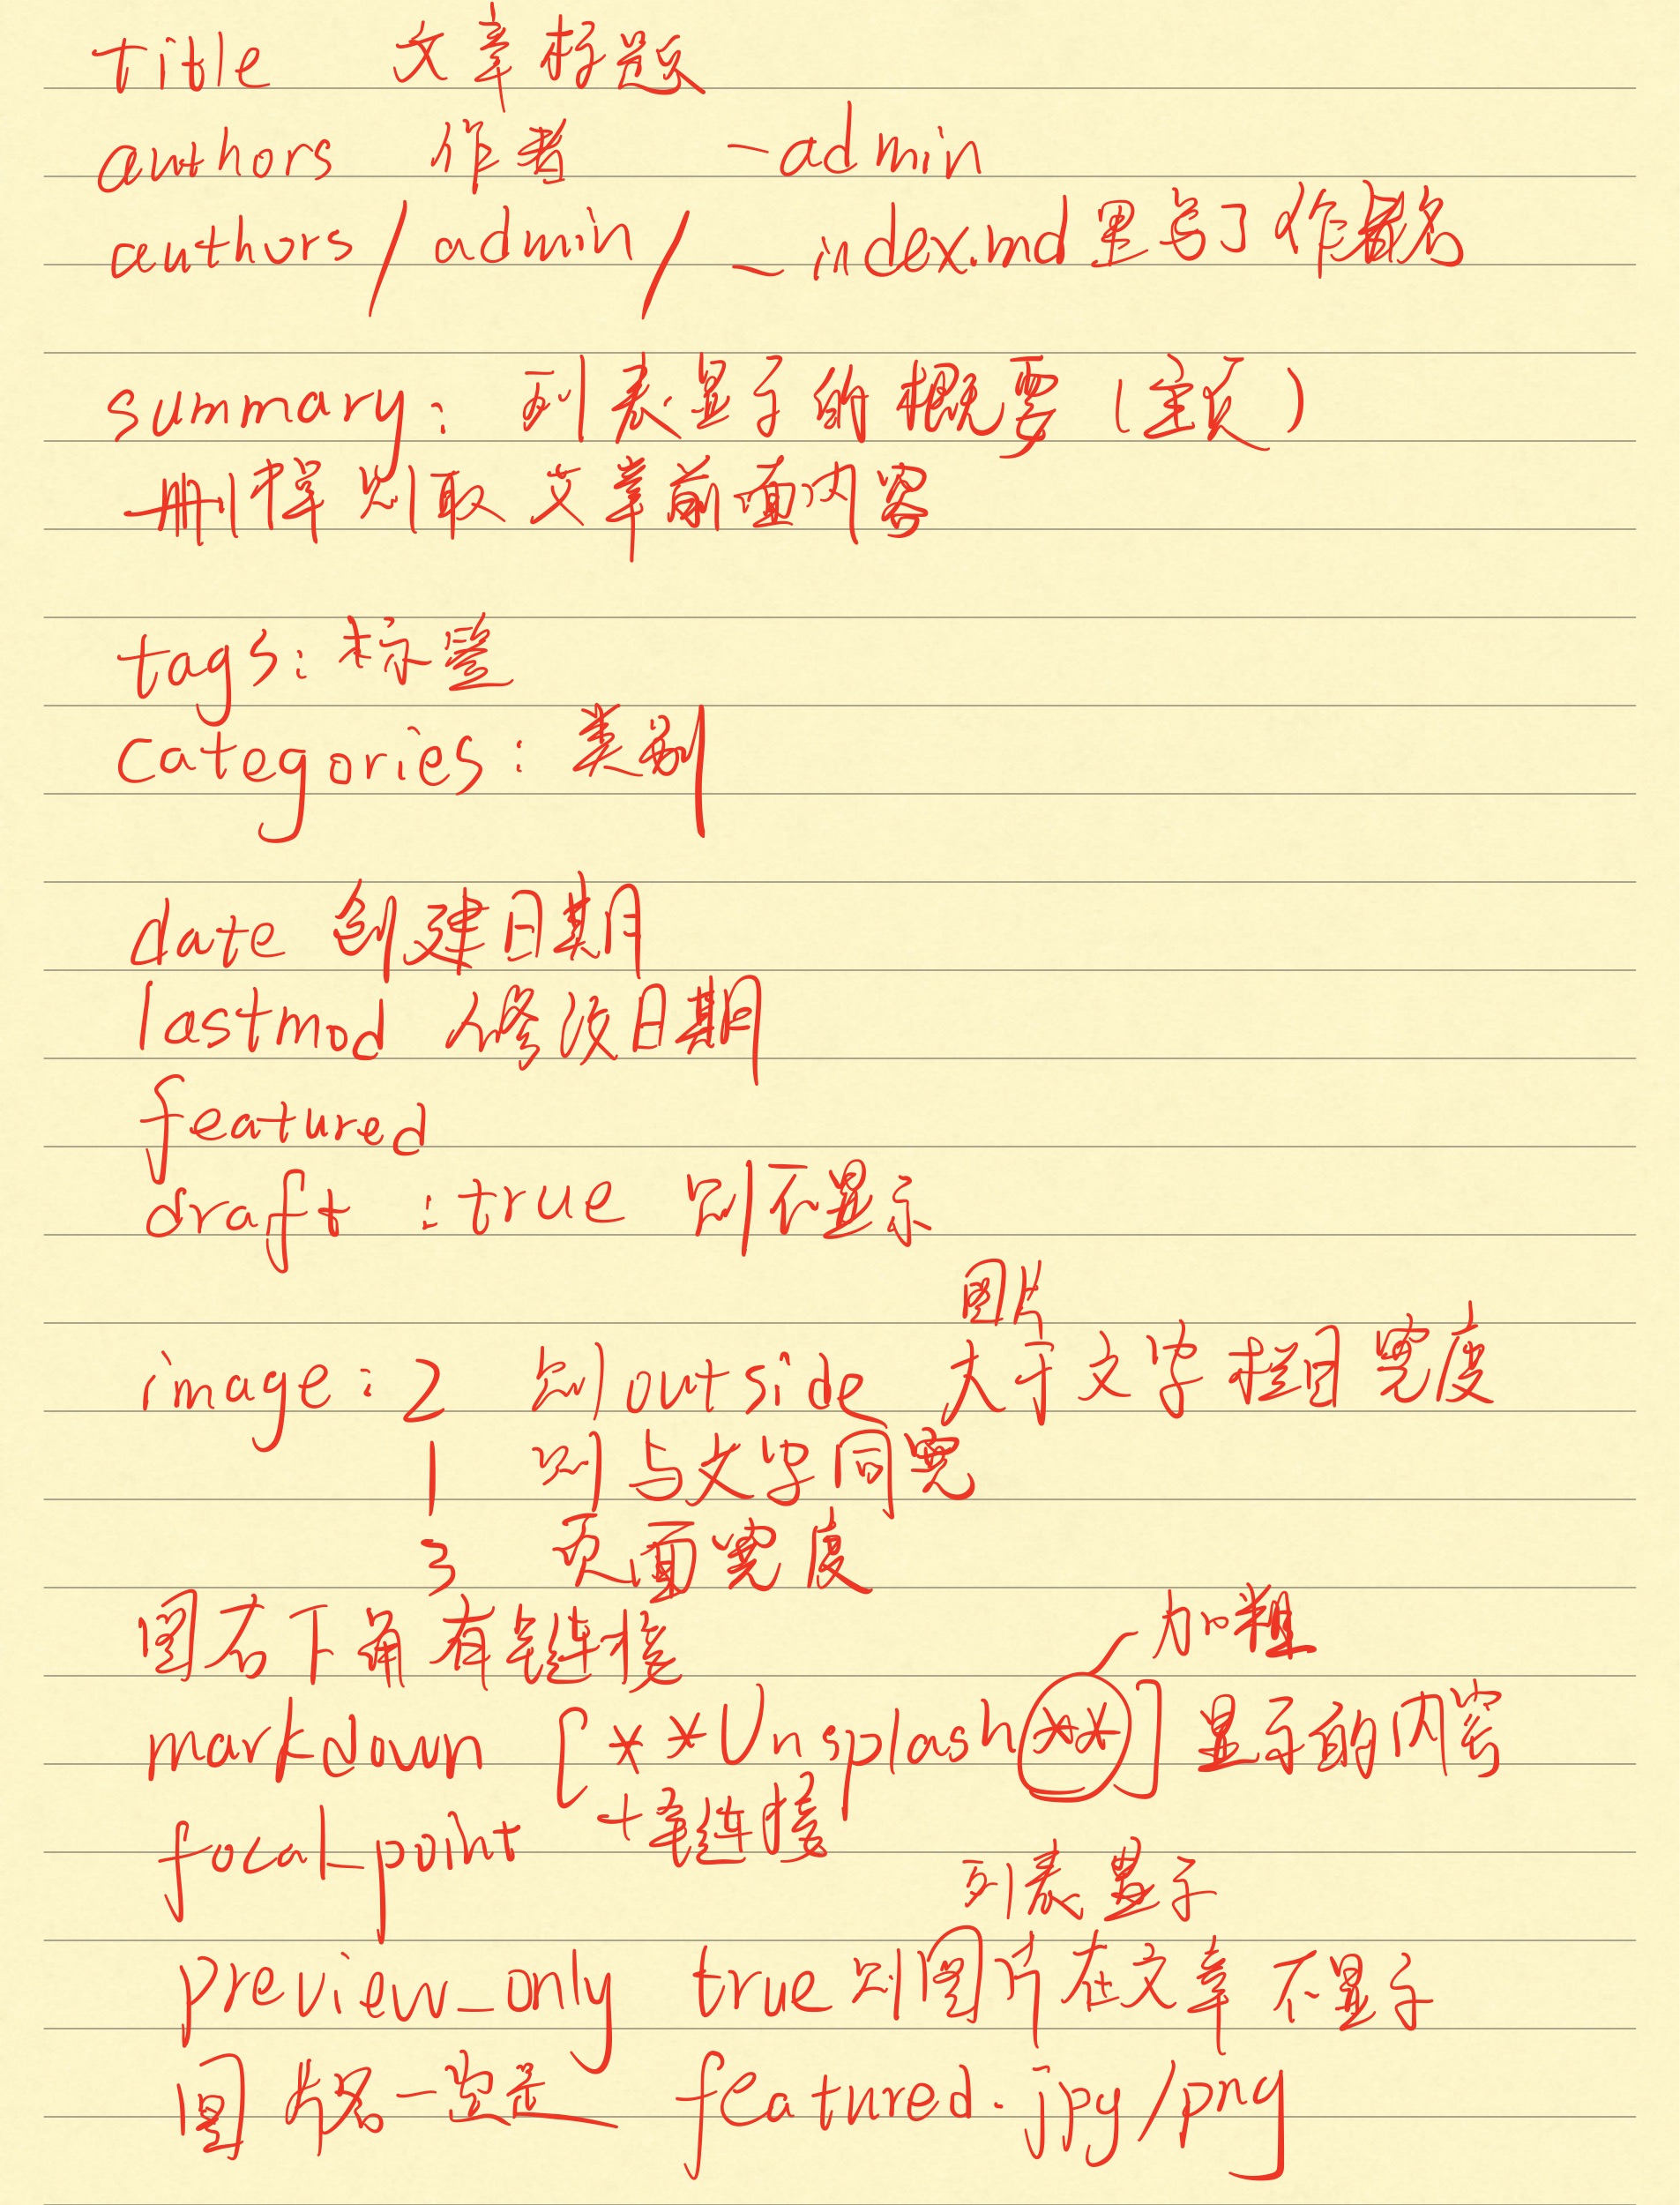 title 文章标题
authors 作者 -admin
authors/admin/_index.md里写了作者名
summary: 列表显示的概要(主页)
删掉则取文章前面内容
tags: 标签
categories: 类别
date 创建日期
lastmod 修改日期
featured
draft :true 则不显示
图片
image: 2 则outside 大于文字栏目宽度
1 则与文字同宽
3 页面宽度
图右下角有链接
加粗
markdown [**Unsplash**] 显示的内容
+链接
focal_point
列表显示
preview_only true则图片在文章不显示
图片名一定是 featured.jpg/png